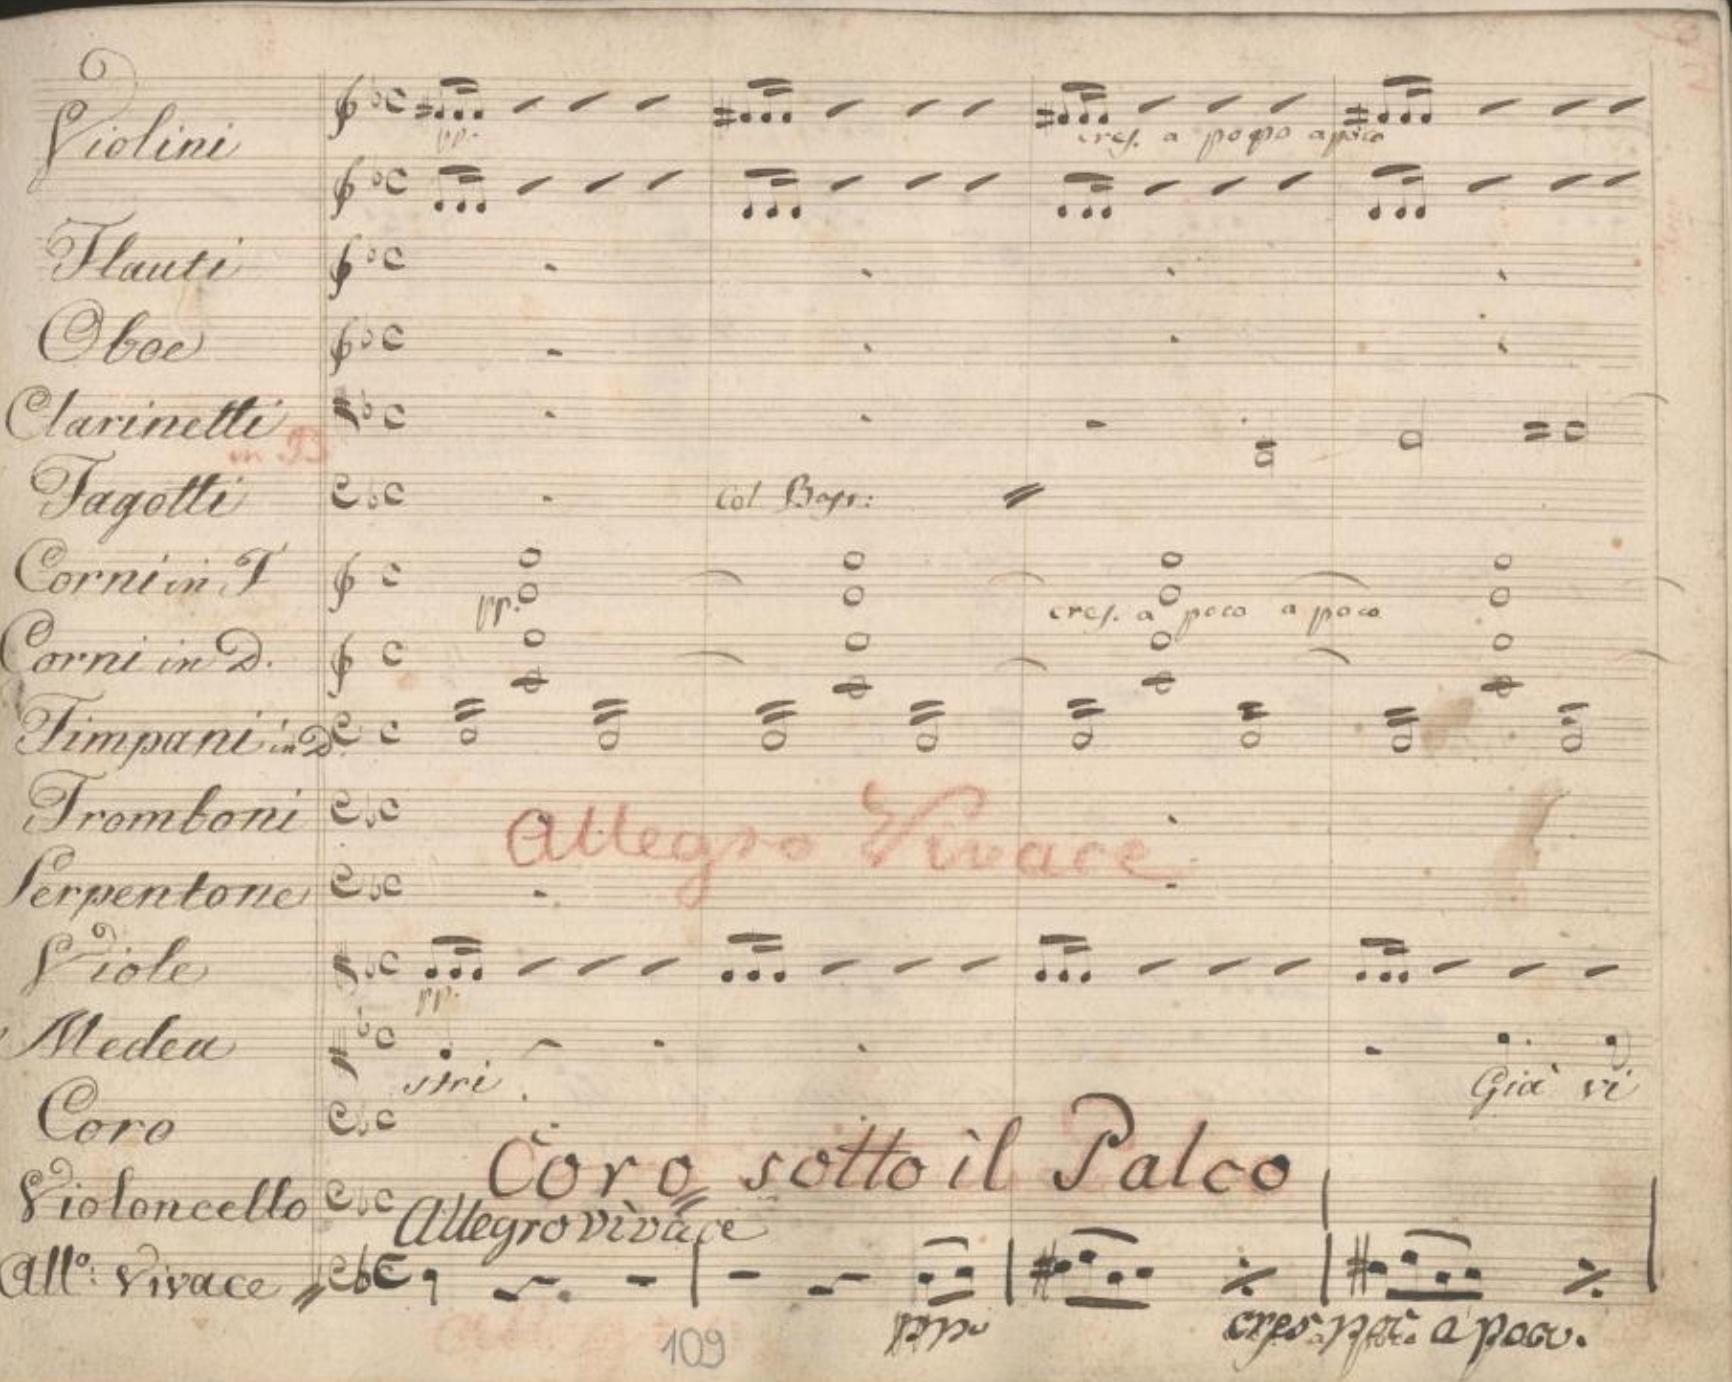 Violini
pp.
cres. a poco a poco
Flauti
Oboe
Clarinetti
in B
Fagotti
Col Bass:
Corni in F
pp.
cres. a poco a poco
Corni in D.
Timpani in D
Tromboni
Allegro Vivace
Serpentone
Viole
pp.
Medea
stri
Già vi
Coro
Coro sotto il Palco
Violoncello
Allegro vivace
All.º: Vivace
ppº
cres. poc. a poco.
109